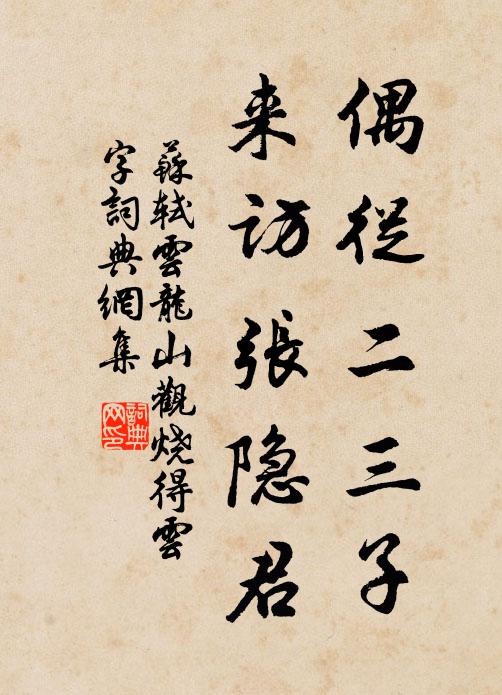 偶從二三子
来访張隐君
蘇軾雲龍山觀烧得雲
字詞典網集
詞典
网印